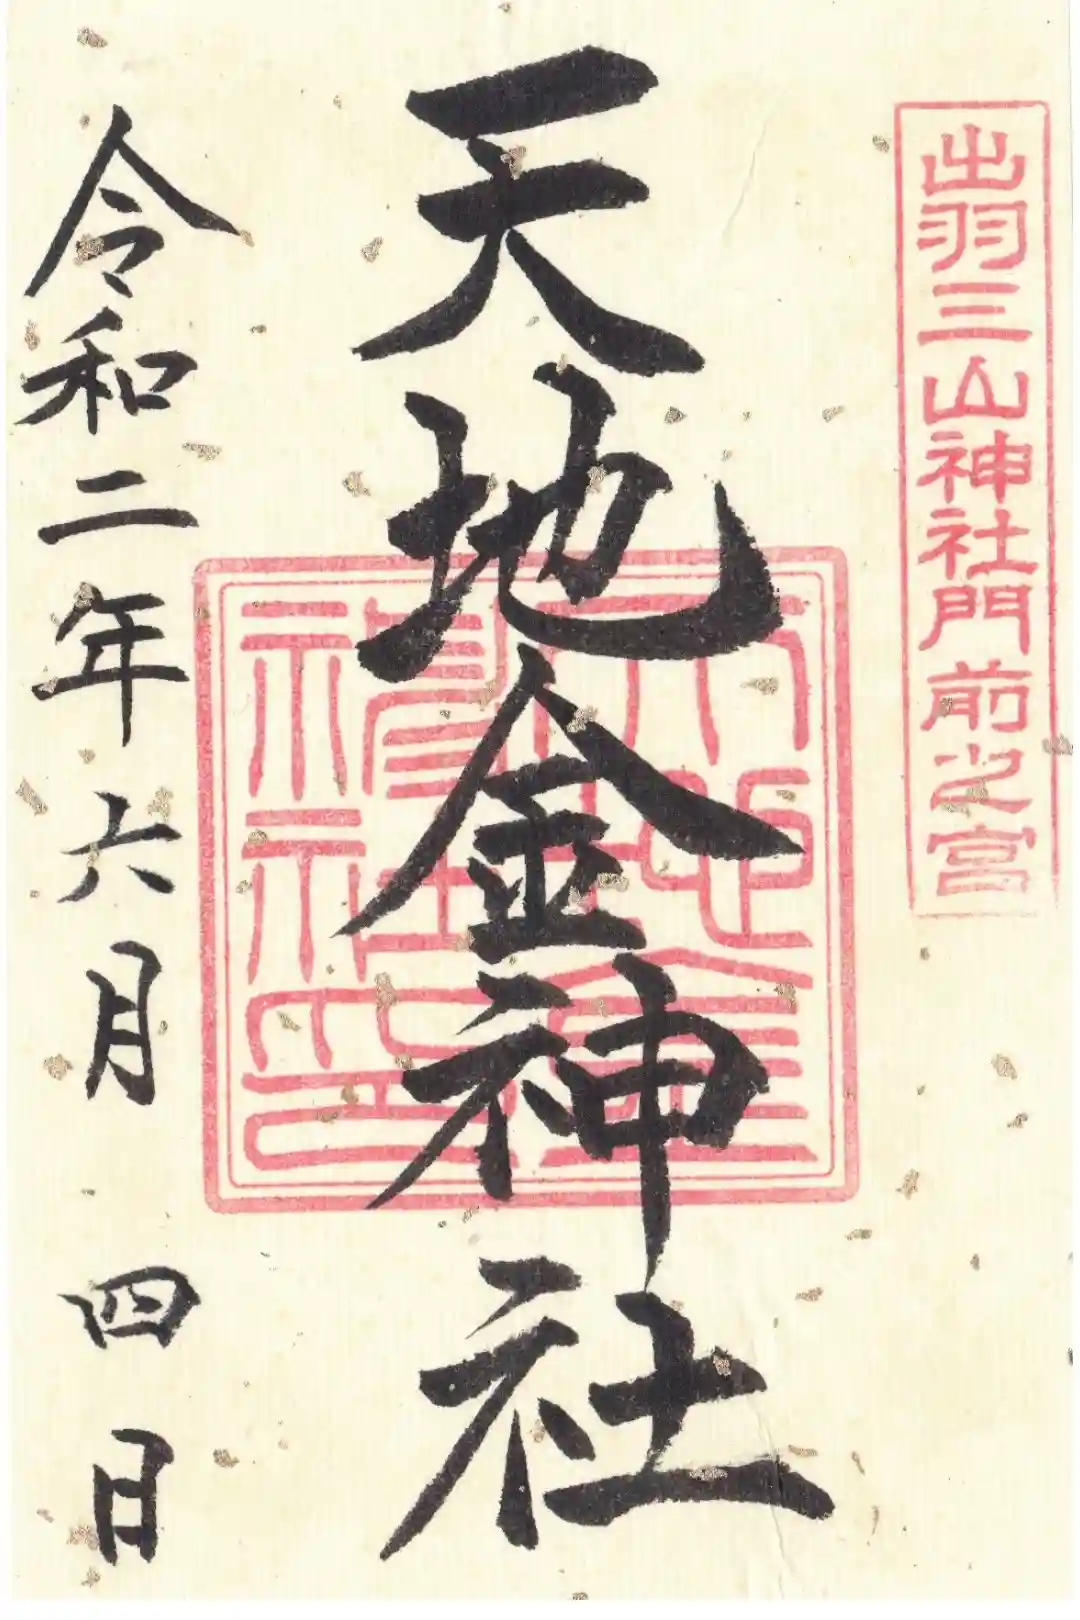 出羽三山神社門前之宮
天地金神社
天地金
神社印
令和二年六月四日